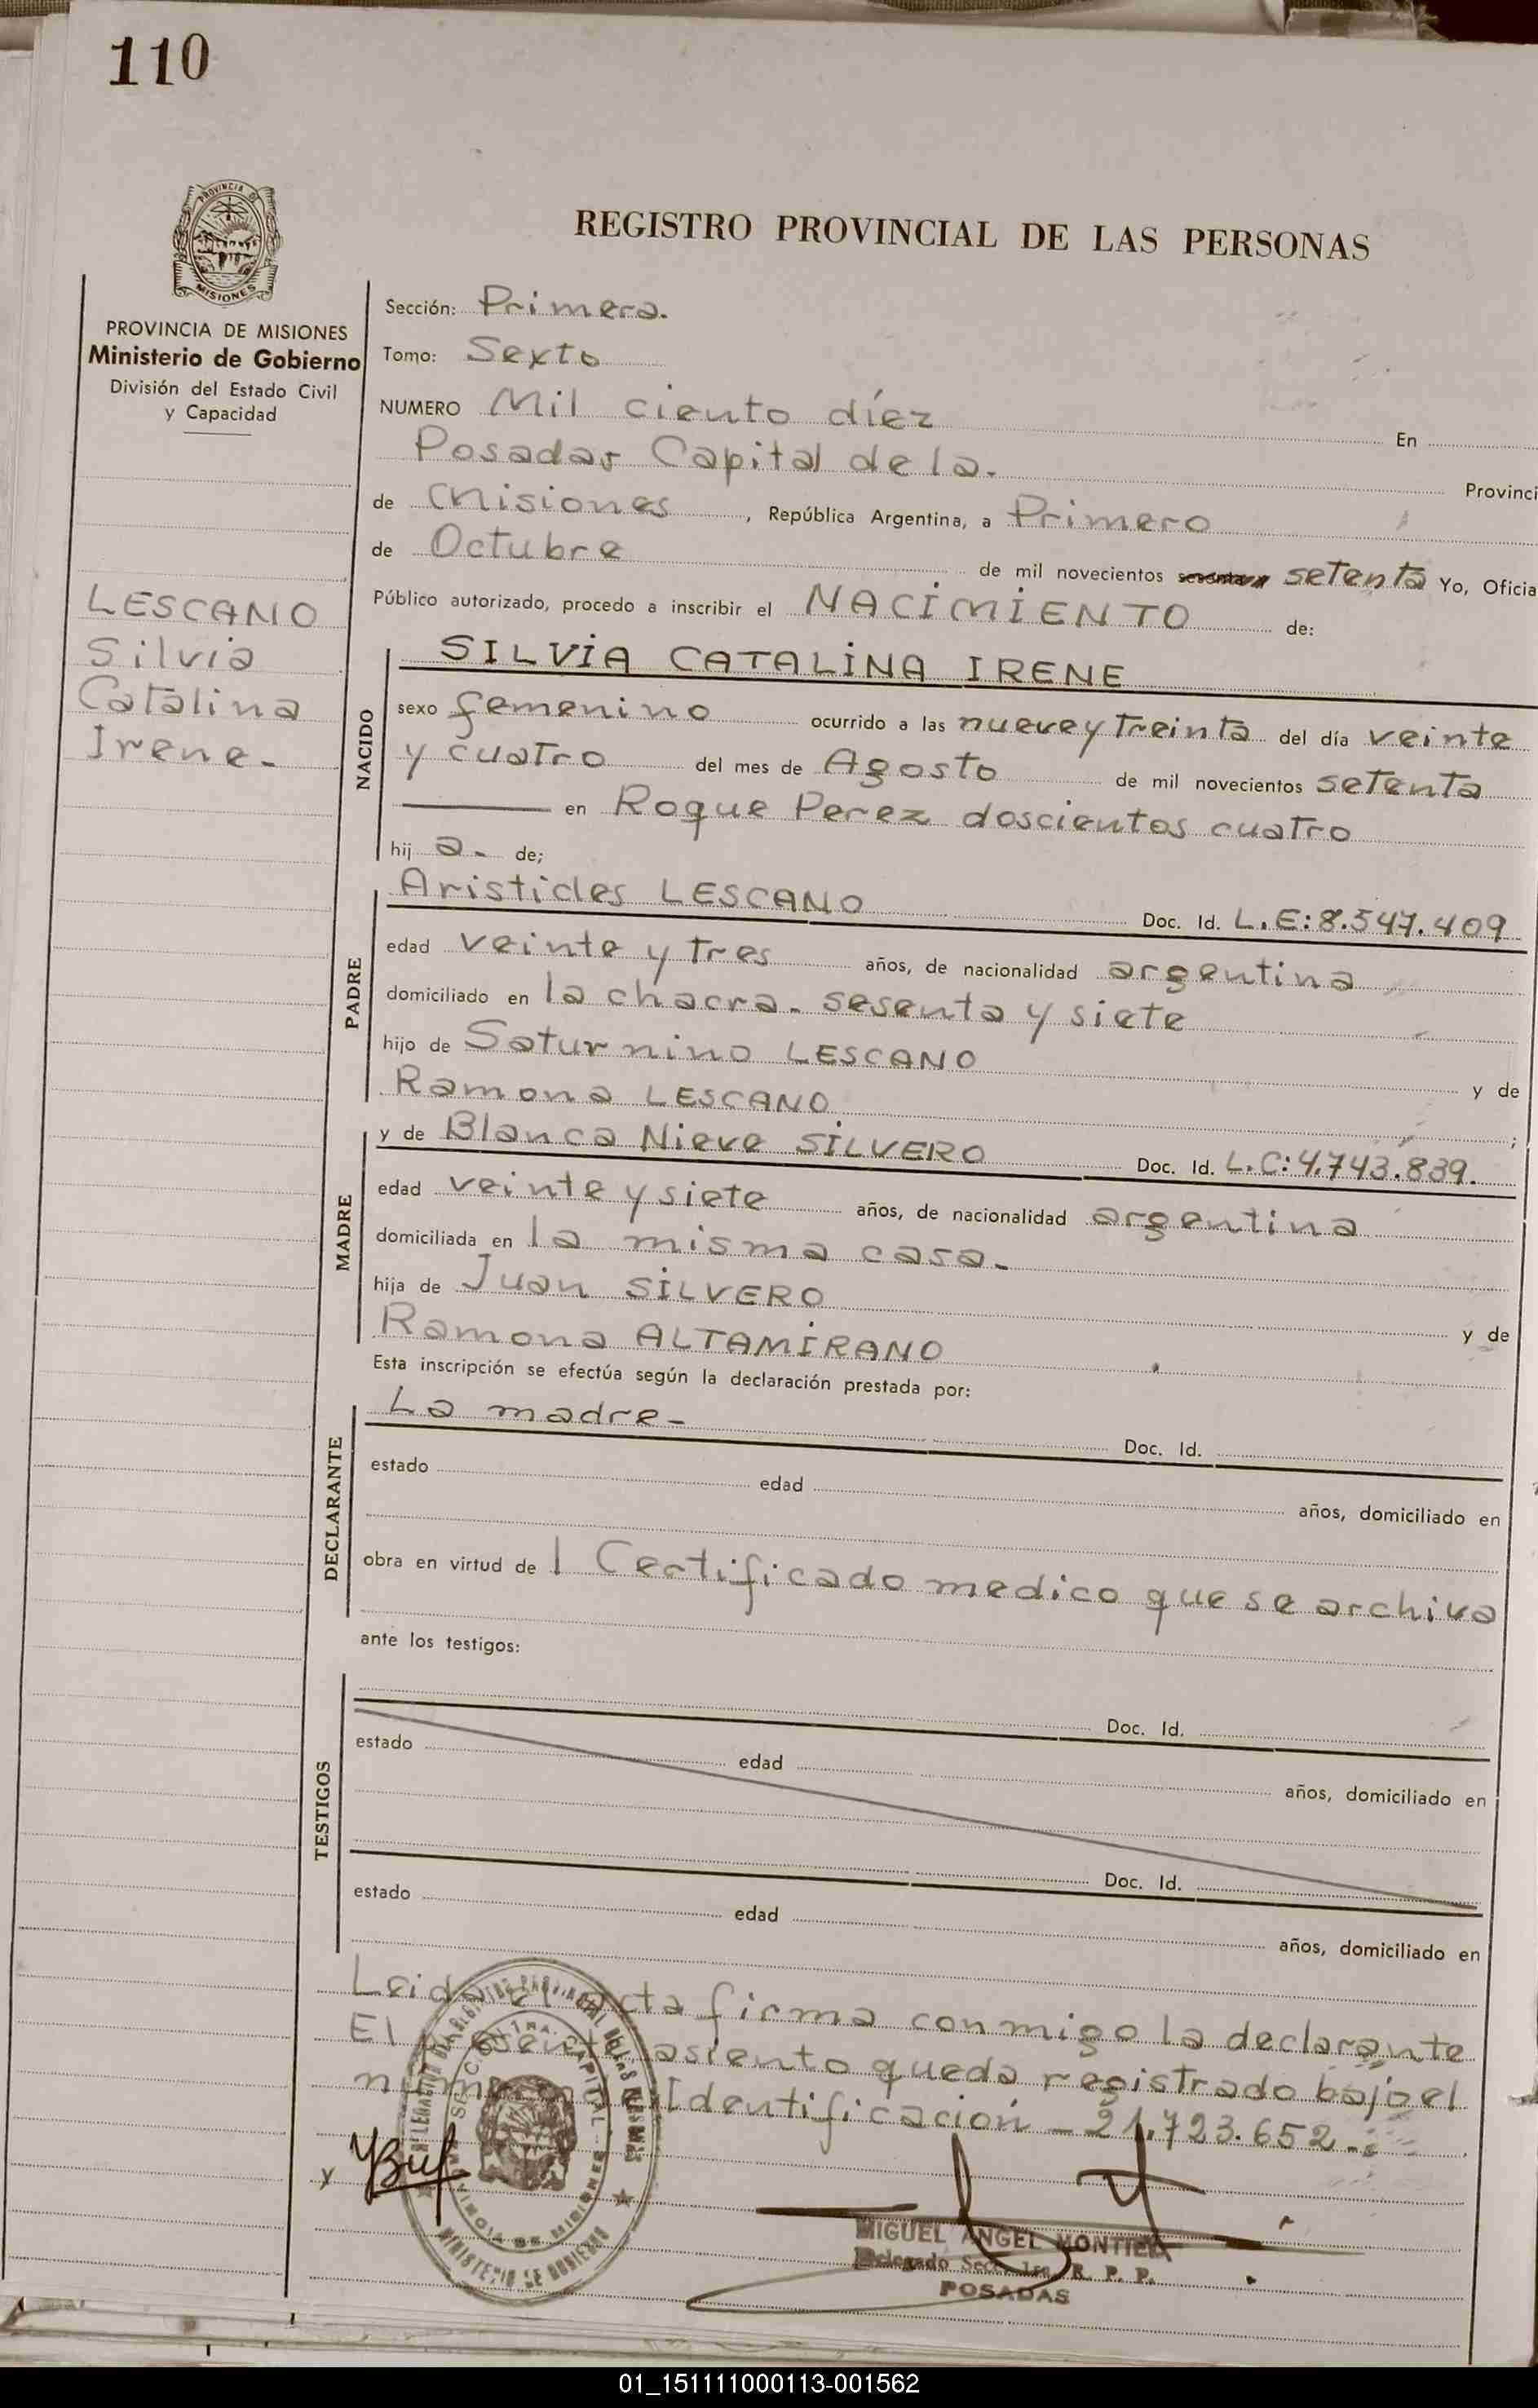 110
PROVINCIA DE
MISIONES
REGISTRO PROVINCIAL DE LAS PERSONAS
PROVINCIA DE MISIONES
Ministerio de Gobierno
División del Estado Civil
y Capacidad
LESCANO
Silvia
Catalina
Irene-
Sección: Primera.
Tomo: Sexto
NUMERO Mil ciento díez En
Posadas Capital de la. Provinci
de Misiones, República Argentina, a Primero
de Octubre de mil novecientos setenta Yo, Oficia
Público autorizado, procedo a inscribir el NACIMIENTO de:
NACIDO
SILVIA CATALINA IRENE
sexo femenino ocurrido a las nueve y treinta del día veinte
y cuatro del mes de Agosto de mil novecientos setenta
en Roque Perez doscientos cuatro
hij a- de;
PADRE
Aristides LESCANO Doc. Id. L.E:8.547.409
edad veinte y tres años, de nacionalidad argentina
domiciliado en la chacra- sesenta y siete
hijo de Saturnino LESCANO y de
Ramona LESCANO ;
MADRE
y de Blanca Nieve SILVERO Doc. Id. L.C:4.743.839.
edad veinte y siete años, de nacionalidad argentina
domiciliada en la misma casa-
hija de Juan SILVERO y de
Ramona ALTAMIRANO
Esta inscripción se efectúa según la declaración prestada por:
DECLARANTE
La madre- Doc. Id.
estado edad años, domiciliado en
obra en virtud de l Certificado medico que se archiva
ante los testigos:
TESTIGOS
Doc. Id.
estado edad años, domiciliado en
Doc. Id.
estado edad años, domiciliado en
Leida el acta firma conmigo la declarante
El presente asiento queda registrado bajo el
Identificación - 21.723.652-
MINISTERIO DE GOBIERNO
MIGUEL ANGEL MONTIEL
Delegado R. P. P.
POSADAS
01_151111000113-001562